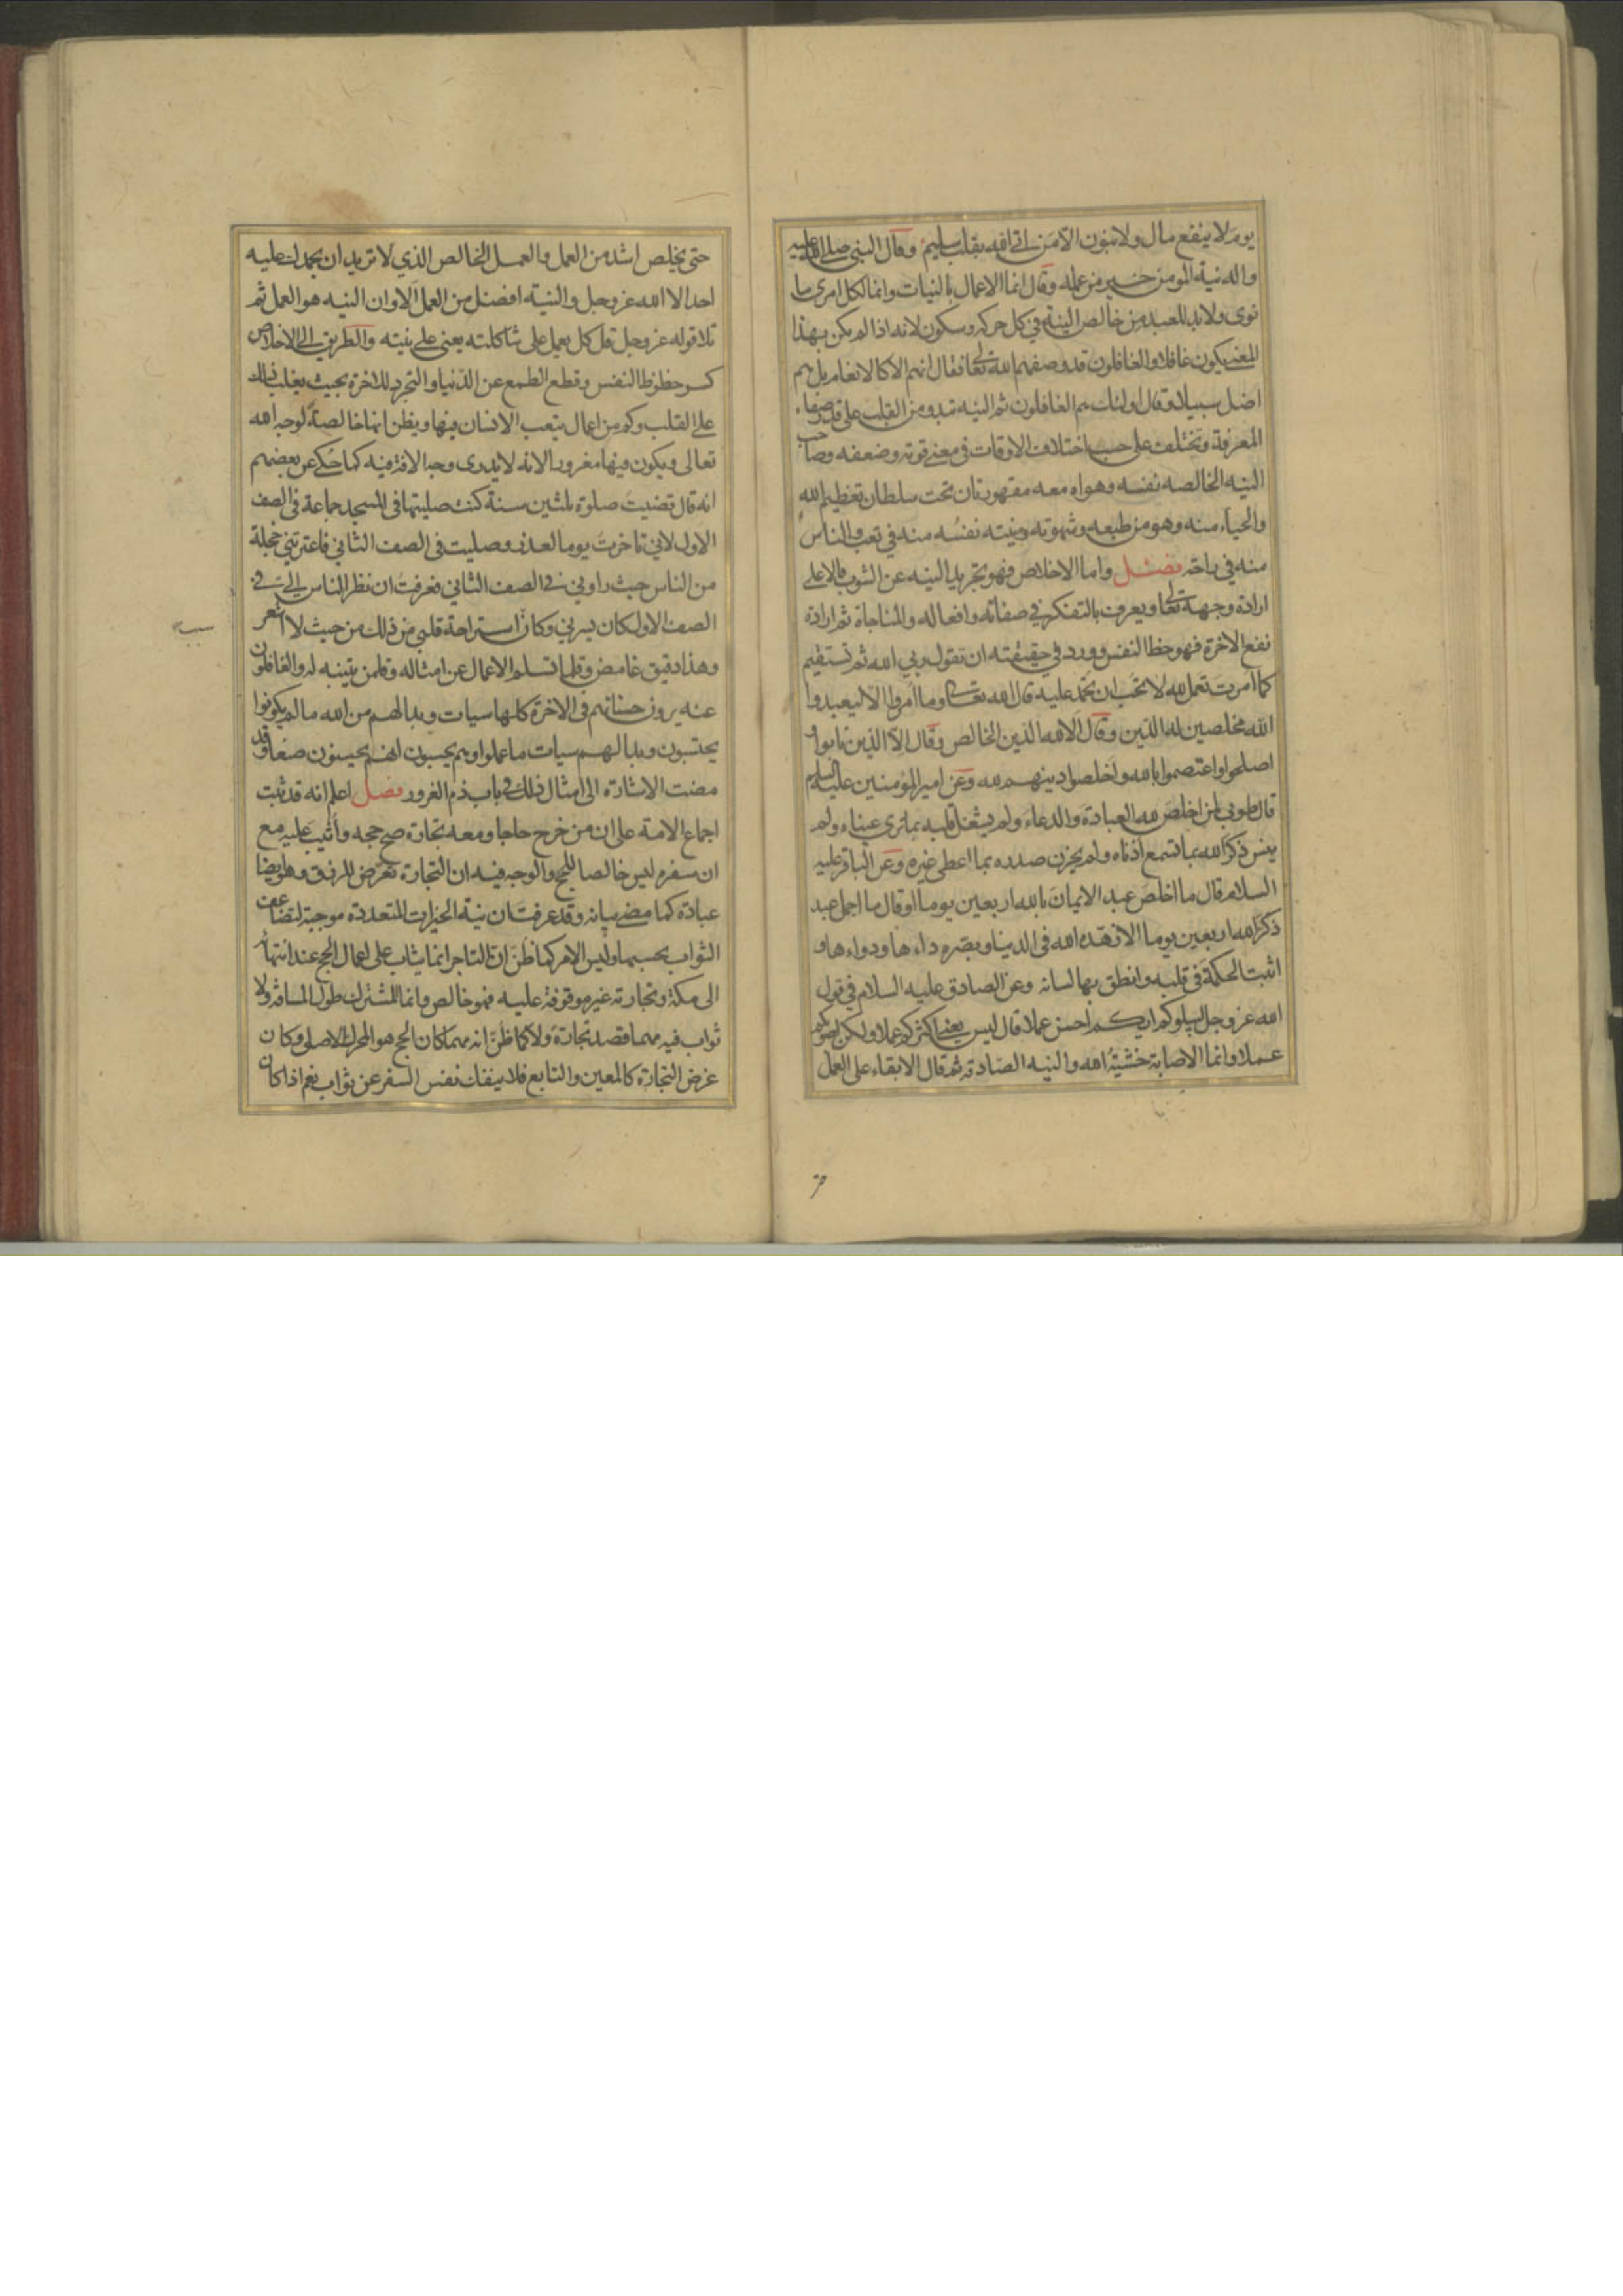 يوم لا ينفع مال ولا بنون الا من اتى الله بقلب سليم وقال النبي صلى الله عليه
واله نية المومن خير من عمله وقال انما الاعمال بالنيات وانما لكل امرئ ما
نوى ولا بد للعبد من خالص النية في كل حركة وسكون لانه اذا لم يكن بهذا
المعنى يكون غافلا والغافلون قد وصفهم الله تعالى فقال ان هم الا كالانعام بل هم
اضل سبيلا وقال اولئك هم الغافلون ثم النيه تبدو من القلب على قدر صفاء
المعرفة وتختلف على حسب اختلاف الاوقات في معنى قوته وضعفه وصاحب
النيه الخالصه نفسه وهواه معه مقهورتان تحت سلطان تعظيم الله
والحياء منه وهو من طبعه وشهوته ومنيته نفسه منه في تعب والناس
منه في راحة فصل واما الاخلاص فهو تجريد النيه عن الشوب فالاعلى
ارادة وجهه تعالى ويعرف بالتفكر في صفاته وافعاله والمناجاة ثم ارادة
نفع الاخرة فهو حظ النفس وورد في حقيقته ان تقول ربي الله ثم تستقيم
كما امرت تعمل لله لا تحب ان تحمد عليه قال الله تعالى وما امروا الا ليعبدوا
الله مخلصين له الدين وقال الا لله الدين الخالص وقال الا الذين تابوا و
اصلحوا واعتصموا بالله واخلصوا دينهم لله وعن امير المؤمنين عليه السلام
قال طوبى لمن اخلص لله العبادة والدعاء ولم يشغل قلبه بما ترى عيناه ولم
ينس ذكر الله بما تسمع اذناه ولم يحزن صدره بما اعطى غيره وعن الباقر عليه
السلام قال ما اخلص عبد الايمان بالله اربعين يوما او قال ما اجمل عبد
ذكر الله اربعين يوما الا زهده الله في الدنيا وبصره داءها ودواءها و
اثبت الحكمة في قلبه وانطق بها لسانه وعن الصادق عليه السلام في قول
الله عز وجل ليبلوكم ايكم احسن عملا قال ليس يعنى اكثركم عملا ولكن اصوبكم
عملا وانما الاصابة خشية الله والنيه الصادقة ثم قال الابقاء على العمل
حتى يخلص اشد من العمل والعمل الخالص الذي لا تريد ان يحمدك عليه
احد الا الله عز وجل والنية افضل من العمل الا وان النيه هو العمل ثم
تلا قوله عز وجل قل كل يعمل على شاكلته يعنى على نيته والطريق الى الاخلاص
كسر حظوظ النفس وقطع الطمع عن الدنيا والتجرد للاخرة بحيث يغلب ذلك
على القلب وكم من اعمال يتعب الانسان فيها ويظن انها خالصة لوجه الله
تعالى ويكون فيها مغرورا لانه لا يدرى وجه الافة فيه كما حكي عن بعضهم
انه قال قضيت صلوة ثلثين سنة كنت صليتها في المسجد جماعة في الصف
الاول لاني تاخرت يوما لعذر وصليت في الصف الثاني فاعترتني خجلة
من الناس حيث راوني في الصف الثاني فعرفت ان نظر الناس الي في
الصف الاول كان يسرني وكان استراحة قلبي من ذلك من حيث لا اشعر
وهذا دقيق غامض وقلما تسلم الاعمال عن امثاله وقل من يتنبه له والغافلون
عنه يرون حسناتهم في الاخرة كلها سيات وبدا لهم من الله ما لم يكونوا
يحتسبون وبدا لهم سيات ما عملوا وهم يحسبون انهم يحسنون صنعا وقد
مضت الاشارة الى امثال ذلك في باب ذم الغرور فصل اعلم انه قد ثبت
اجماع الامة على ان من خرج حاجا ومعه تجارة صح حجه واثيب عليه مع
ان سفره ليس خالصا للحج والوجه فيه ان التجارة تعرض للرزق وهو ايضا
عبادة كما مضى بيانه وقد عرفت ان نية الخيرات المتعددة موجبة لتضاعف
الثواب بحسبها وليس الامر كما ظن ان التاجر انما يثاب على اعمال الحج عند انتهائه
الى مكة وتجارته غير موقوفة عليه فهو خالص وانما المشترك طول المسافة ولا
ثواب فيه مهما قصد تجارة ولا كما ظن انه مهما كان الحج هو المحرك الاصلي وكان
غرض التجارة كالمعين والتابع فلا ينفك نفس السفر عن ثواب نعم اذا كان